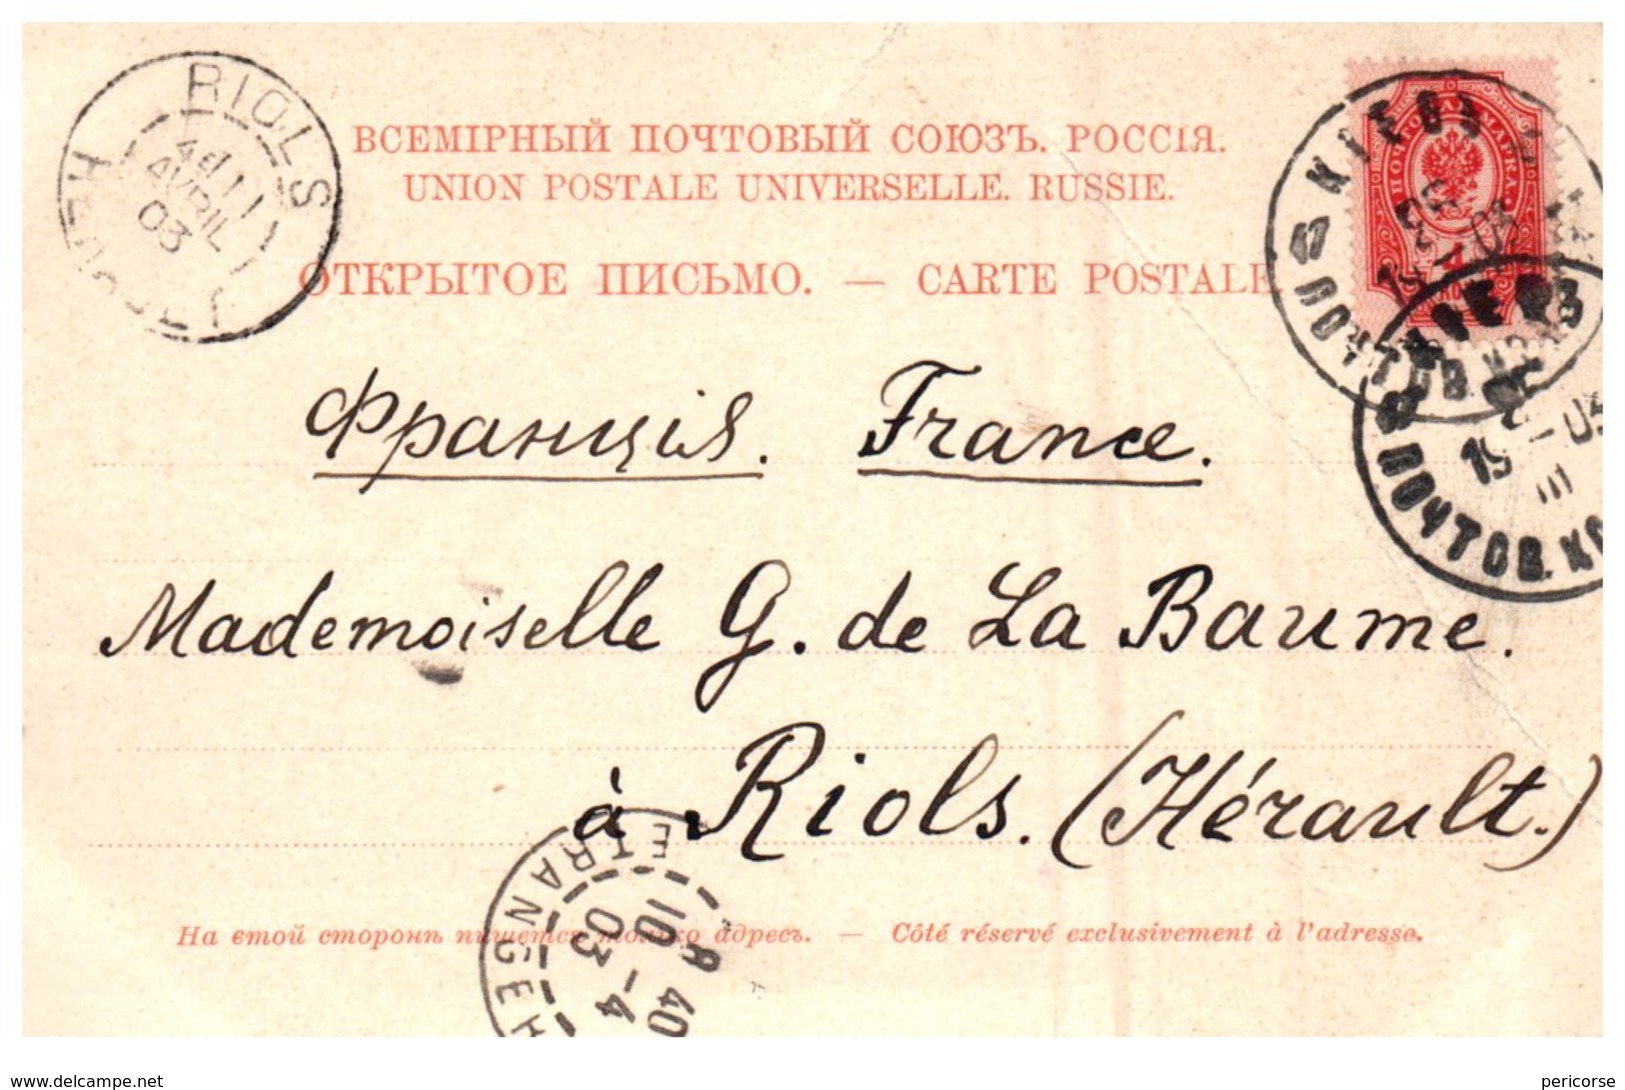 RIOLS
HERAULT
11
AVRIL
03
ВСЕМІРНЫЙ ПОЧТОВЫЙ СОЮЗЪ. РОССІЯ.
UNION POSTALE UNIVERSELLE. RUSSIE.
ОТКРЫТОЕ ПИСЬМО. — CARTE POSTALE
ПОЧТОВАЯ МАРКА.
КІЕВЪ
ПОЧТОВ.
КІЕВЪ
ПОЧТОВ. КО
Франція. France.
Mademoiselle G. de La Baume.
à Riols. (Hérault.)
ETRANGER
10 R 40
03 -4
На етой сторонѣ пишется только адресъ. — Côté réservé exclusivement à l'adresse.
www.delcampe.net
pericorse